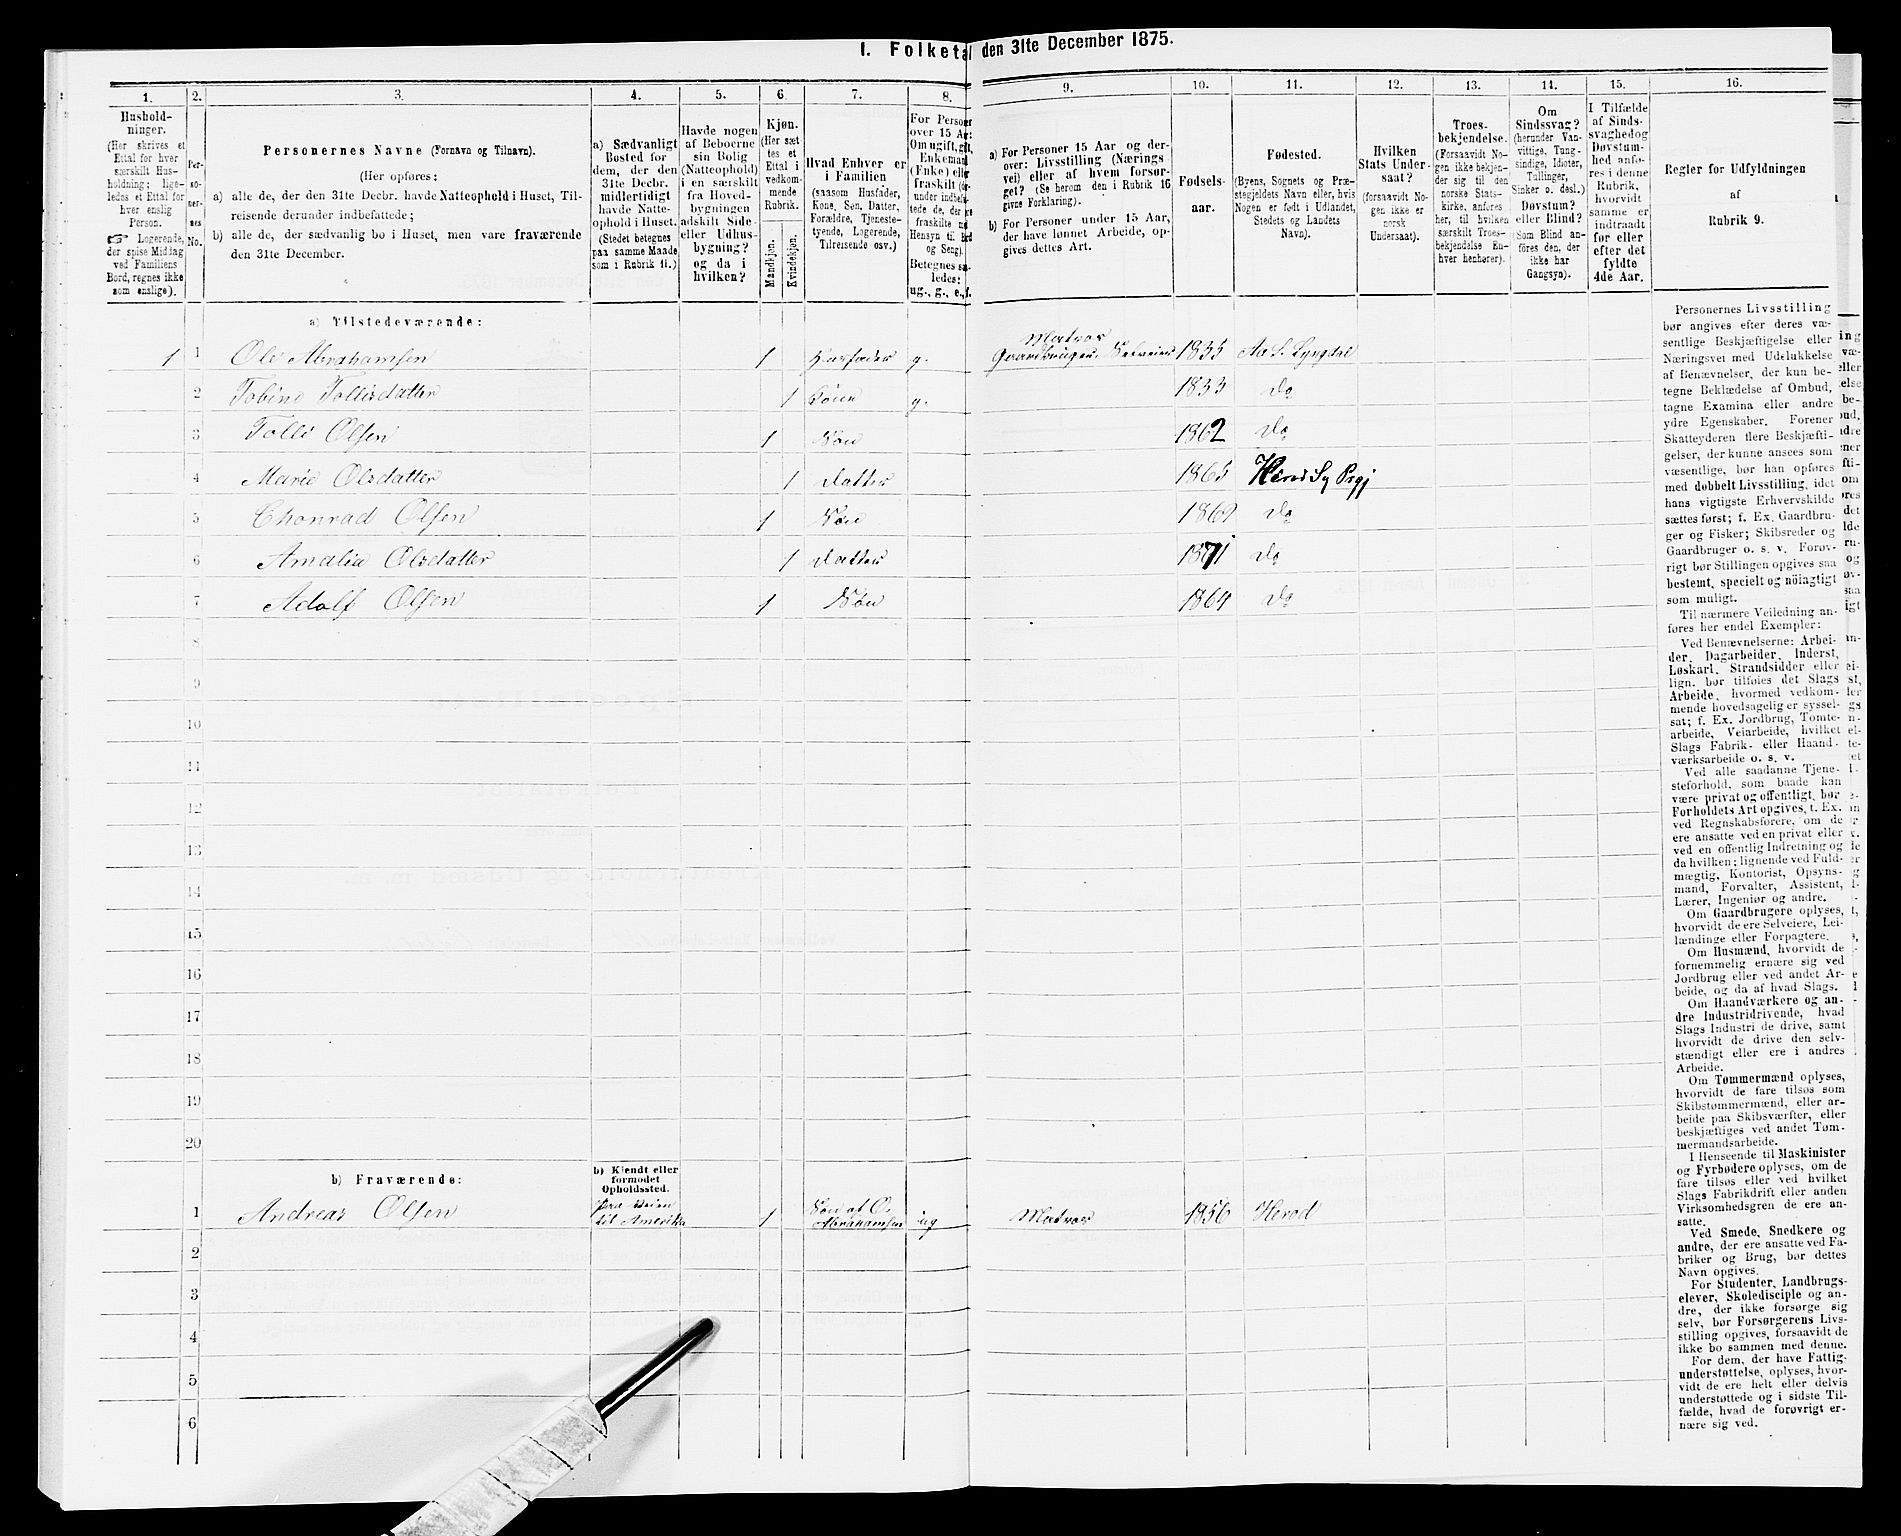 I. Folketal den 31te December 1875.
1. 2. 3. 4. 5. 6. 7. 8. 9. 10. 11. 12. 13. 14. 15. 16.
Hushold-
ninger.
(Her skrives et
Ettal for hver
særskilt Hus-
holdning; lige-
ledes et Ettal for
hver enslig
Person.
☞ Logerende,
der spise Middag
ved Familiens
Bord, regnes ikke
som enslige).
Per-
so-
ner-
nes
No.
Personernes Navne (Fornavn og Tilnavn).
(Her opføres:
a) alle de, der den 31te Decbr. havde Natteophold i Huset, Til-
reisende derunder indbefattede;
b) alle de, der sædvanlig bo i Huset, men vare fraværende
den 31te December.
a) Sædvanligt
Bosted for
dem, der den
31te Decbr.
midlertidigt
havde Natte-
ophold i Huset.
(Stedet betegnes
paa samme Maade
som i Rubrik 11.)
Havde nogen
af Beboerne
sin Bolig
(Natteophold)
i en særskilt
fra Hoved-
bygningen
adskilt Side-
eller Udhus-
bygning?
og da i
hvilken?
Kjøn.
(Her sæt
tes et
Ettal i
vedkom-
mende
Rubrik.
Mandkjøn.
Kvindekjøn.
Hvad Enhver er
i Familien
(saasom Husfader,
Kone, Søn, Datter,
Forældre, Tjeneste-
tyende, Logerende,
Tilreisende osv.)
For Personer
over 15 Aar:
Om ugift, gift,
Enkemand
(Enke) eller
fraskilt
Betegnes saa-
ledes:
ug., g., e., f.
a) For Personer 15 Aar og der-
over: Livsstilling (Nærings-
vei) eller af hvem forsør-
get? (Se herom den i Rubrik 16
givne Forklaring).
b) For Personer under 15 Aar,
der have lønnet Arbeide, op-
gives dettes Art.
Fødsels-
aar.
Fødested.
(Byens, Sognets og Præ-
stegjeldets Navn eller, hvis
Nogen er født i Udlandet,
Stedets og Landets
Navn).
Hvilken
Stats Under-
saat?
(forsaavidt No-
gen ikke er
norsk
Undersaat).
Troes-
bekjendelse.
(Forsaavidt No-
gen ikke bekjen-
der sig til den
norske Stats-
kirke, anføres
her, til hvilken
særskilt Troes-
bekjendelse En-
hver henhører).
Om
Sindssvag?
(herunder Van-
vittige, Tung-
sindige, Idioter,
Tullinger,
Sinker o. desl.)
Døvstum?
eller Blind?
(Som Blind an-
føres den, der
ikke har
Gangsyn).
I Tilfælde
af Sinds-
svaghed og
Døvstum-
hed anfø-
res i denne
Rubrik,
hvorvidt
samme er
indtraadt
før eller
efter det
fyldte
4de Aar.
Regler for Udfyldningen
af
Rubrik 9.
a) Tilstedeværende:
1 1 Ole Abrahamsen 1 Husfader g. Matros Gaardbruger Selveier 1835 Aa S. Lyngdal
2 Tobine Tollisdatter 1 Kone g. 1833 Do
3 Tolli Olsen 1 Søn 1862 Do
4 Marie Olsdatter 1 Datter 1865 Herod Ly Prgj
5 Chonrad Olsen 1 Søn 1869 Do
6 Amalia Olsdatter 1 Datter 1871 Do
7 Adolf Olsen 1 Søn 1864 Do
8
9
10
11
12
13
14
15
16
17
18
19
20
b) Fraværende:
b) Kjendt eller
formodet
Opholdssted.
1 Andreas Olsen Paa Veien til Amerika 1 Søn af O. Abrahamsen ug Matros 1856 Herod
2
3
4
5
6
Personernes Livsstilling
bør angives efter deres væ-
sentlige Beskjæftigelse eller
Næringsvei med Udelukkelse
af Benævnelser, der kun be-
tegne Beklædelse af Ombud,
tagne Examina eller andre
ydre Egenskaber. Forener
Skatteyderen flere Beskjæfti-
gelser, der kunne ansees som
væsentlige, bør han opføres
med dobbelt Livsstilling, idet
hans vigtigste Erhvervskilde
sættes først; f. Ex. Gaardbru-
ger og Fisker; Skibsreder og
Gaardbruger o. s. v. Forøv-
rigt bør Stillingen opgives saa
bestemt, specielt og nöiagtigt
som muligt.
Til nærmere Veiledning an-
føres her endel Exempler:
Ved Benævnelserne: Arbei-
der, Dagarbeider, Inderst,
Løskarl, Strandsidder eller
lign. bør tilføies det Slags
Arbeide, hvormed vedkom-
mende hovedsagelig er syssel-
sat; f. Ex. Jordbrug, Tomte-
arbeide, Veiarbeide, hvilket
Slags Fabrik- eller Haand-
værksarbeide o. s. v.
Ved alle saadanne Tjene-
steforhold, som baade kan
være privat og offentligt, bør
Forholdets Art opgives, t. Ex.
ved Regnskabsførere, om de
ere ansatte ved en privat eller
ved en offentlig Indretning og
da hvilken; lignende ved Fuld-
mægtig, Kontorist, Opsyns-
mand, Forvalter, Assistent,
Lærer, Ingeniør og andre.
Om Gaardbrugere oplyses,
hvorvidt de ere Selveiere, Lei-
lændinge eller Forpagtere.
Om Husmænd, hvorvidt de
fornemmelig ernære sig ved
Jordbrug eller ved andet Ar-
beide, og da af hvad Slags.
Om Haandværkere og an-
dre Industridrivende, hvad
Slags Industri de drive, samt
hvorvidt de drive den selv-
stændigt eller ere i andres
Arbeide.
Om Tømmermænd oplyses,
hvorvidt de fare tilsøs som
Skibstømmermænd, eller ar-
beide paa Skibsværfter, eller
beskjæftiges ved andet Tøm-
mermandsarbeide.
I Henseende til Maskinister
og Fyrbødere oplyses, om de
fare tilsøs eller ved hvilket
Slags Fabrikdrift eller anden
Virksomhedsgren de ere an-
satte.
Ved Smede, Snedkere og
andre, der ere ansatte ved Fa-
briker og Brug, bør dettes
Navn opgives.
For Studenter, Landbrugs-
elever, Skoledisciple og an-
dre, der ikke forsørge sig
selv, bør Forsørgerens Livs-
stilling opgives, forsaavidt de
ikke bo sammen med denne.
For dem, der have Fattig-
understøttelse, oplyses, hvor-
vidt de ere helt eller delvis
understøttede og i sidste Til-
fælde, hvad de forøvrigt er-
nære sig ved.